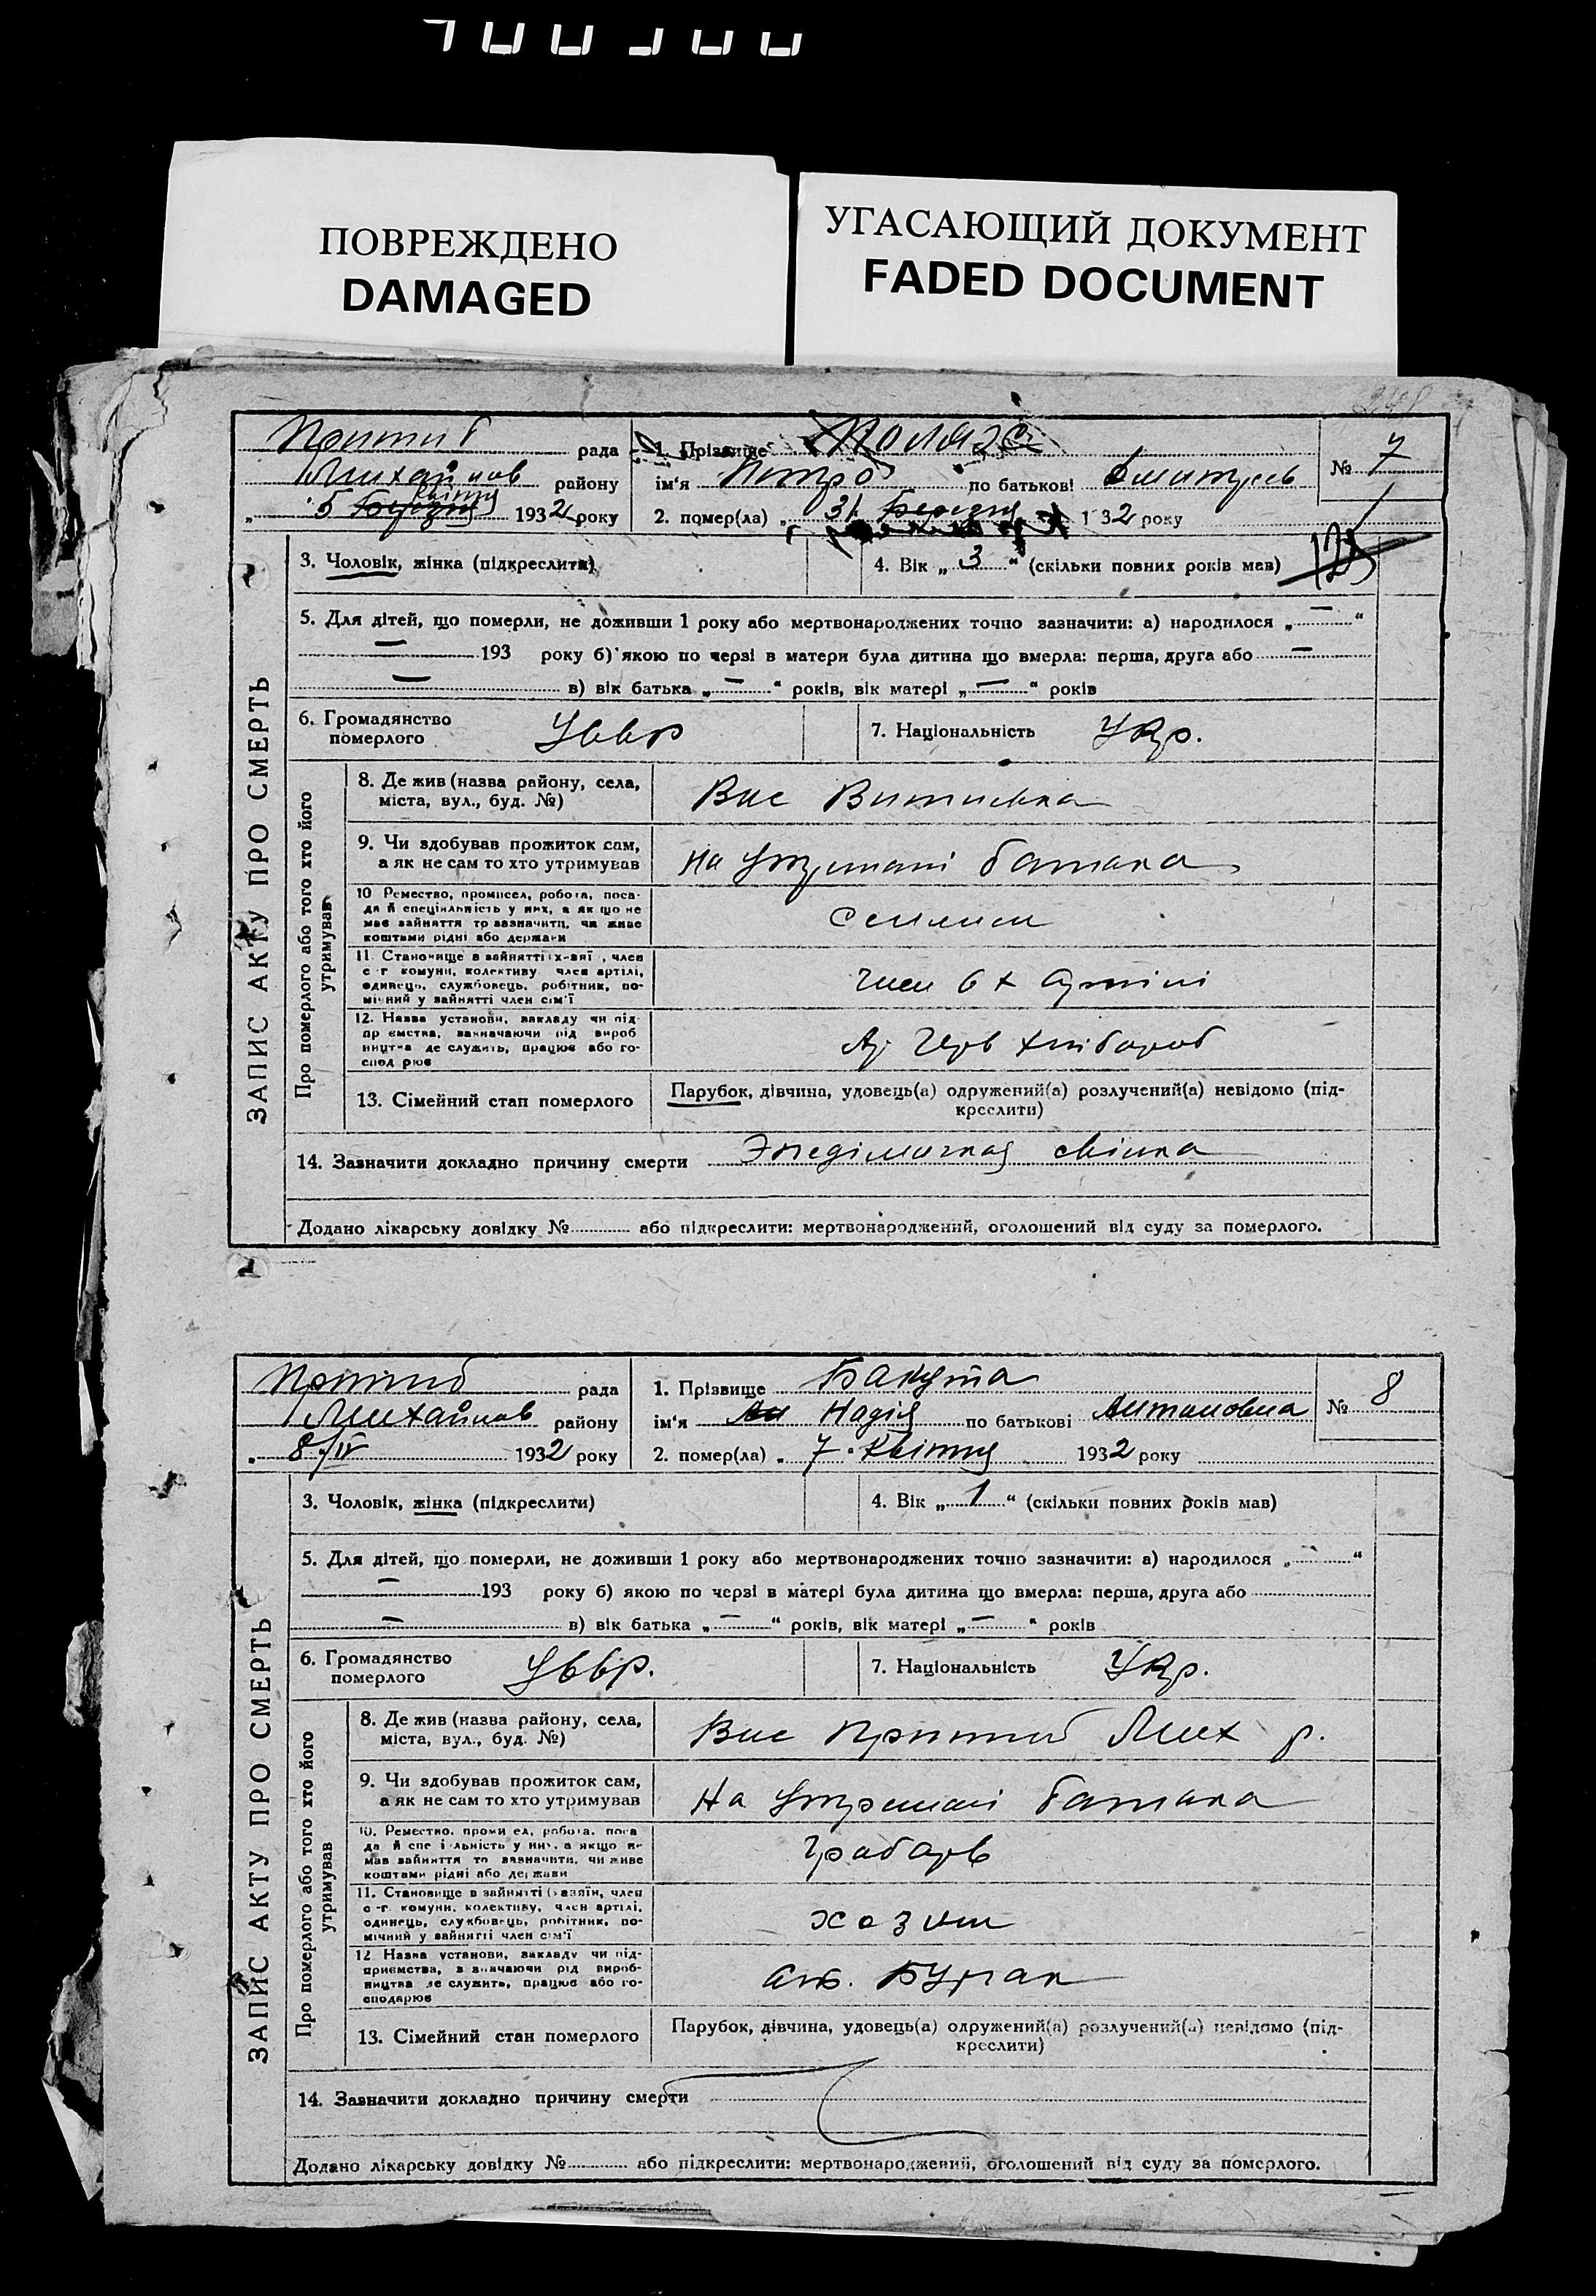 ПОВРЕЖДЕНО
DAMAGED
УГАСАЮЩИЙ ДОКУМЕНТ
FADED DOCUMENT
рада
Михайлов району
5 Березня квітня 1932 року
1. Прізвище
ім'я Петро по батькові
2. помер(ла) „ 31 Березня 132 року
№ 7
ЗАПИС АКТУ ПРО СМЕРТЬ
3. Чоловік, жінка (підкреслити)
4. Вік „ 3 “ (скільки повних років мав)
5. Для дітей, що померли, не доживши 1 року або мертвонароджених точно зазначити: а) народилося „ — “
— 193 року б) якою по черзі в матери була дитина що вмерла: перша, друга або —
— в) вік батька „ — “ років, вік матері „ — “ років
6. Громадянство
померлого
УССР
7. Національність Укр.
Про померлого або того хто його
утримував
8. Де жив (назва району, села,
міста, вул., буд. №)
9. Чи здобував прожиток сам,
а як не сам то хто утримував
На утримані батька
10 Ремество, промисел, робота, поса-
да й спеціяльність у них, а якщо не
має зайняття то зазначити, чи живе
коштами рідні або держави
11. Становище в зайнятті (х-зяї , член
с-г комуни, колективу член артілі,
одинець, службовець, робітник, по-
мічний у зайнятті член сім'ї
член с х артілі
12. Назва установи, закладу чи під-
пр ємства, зазначаючи рід вироб
ництва де служить, працює або го-
спод рює
Ар. Черв Хлібороб
13. Сімейний стан померлого
Парубок, дівчина, удовець(а) одружений(а) розлучений(а) невідомо (під-
креслити)
14. Зазначити докладно причину смерти
Додано лікарську довідку № або підкреслити: мертвонароджений, оголошений від суду за померлого.
рада
Михайлов району
„ 8/IV 1932 року
1. Прізвище Бакута
ім'я Надія по батькові Антоновна
2. помер(ла) „ 7 Квітня 1932 року
№ 8
ЗАПИС АКТУ ПРО СМЕРТЬ
3. Чоловік, жінка (підкреслити)
4. Вік „ 1 “ (скільки повних років мав)
5. Для дітей, що померли, не доживши 1 року або мертвонароджених точно зазначити: а) народилося „ “
— 193 року б) якою по черзі в матері була дитина що вмерла: перша, друга або
— в) вік батька „ — “ років, вік матері „ — “ років
6. Громадянство
померлого
УССР.
7. Національність Укр.
Про померлого або того хто його
утримував
8. Де жив (назва району, села,
міста, вул., буд. №)
Мих р.
9. Чи здобував прожиток сам,
а як не сам то хто утримував
На утримані батька
10. Ремество, проми ел, робота, поса
да й спе і льність у них, а якщо не
мав зайняття то зазначити, чи живе
коштами рідні або держави
Грабарь
11. Становище в зайнятті (хазяїн, член
с-г комуни, колективу, член артілі,
одинець, службовець, робітник, по-
мічний у зайнятті член сім'ї
хозяин
12 Назва установи, закладу чи під-
приємства, зазначаючи рід вироб-
ництва де служить, працює або го-
сподарює
13. Сімейний стан померлого
Парубок, дівчина, удовець(а) одружений(а) розлучений(а) невідомо (під-
креслити)
14. Зазначити докладно причину смерти
Додано лікарську довідку № або підкреслити: мертвонароджений, оголошений від суду за померлого.